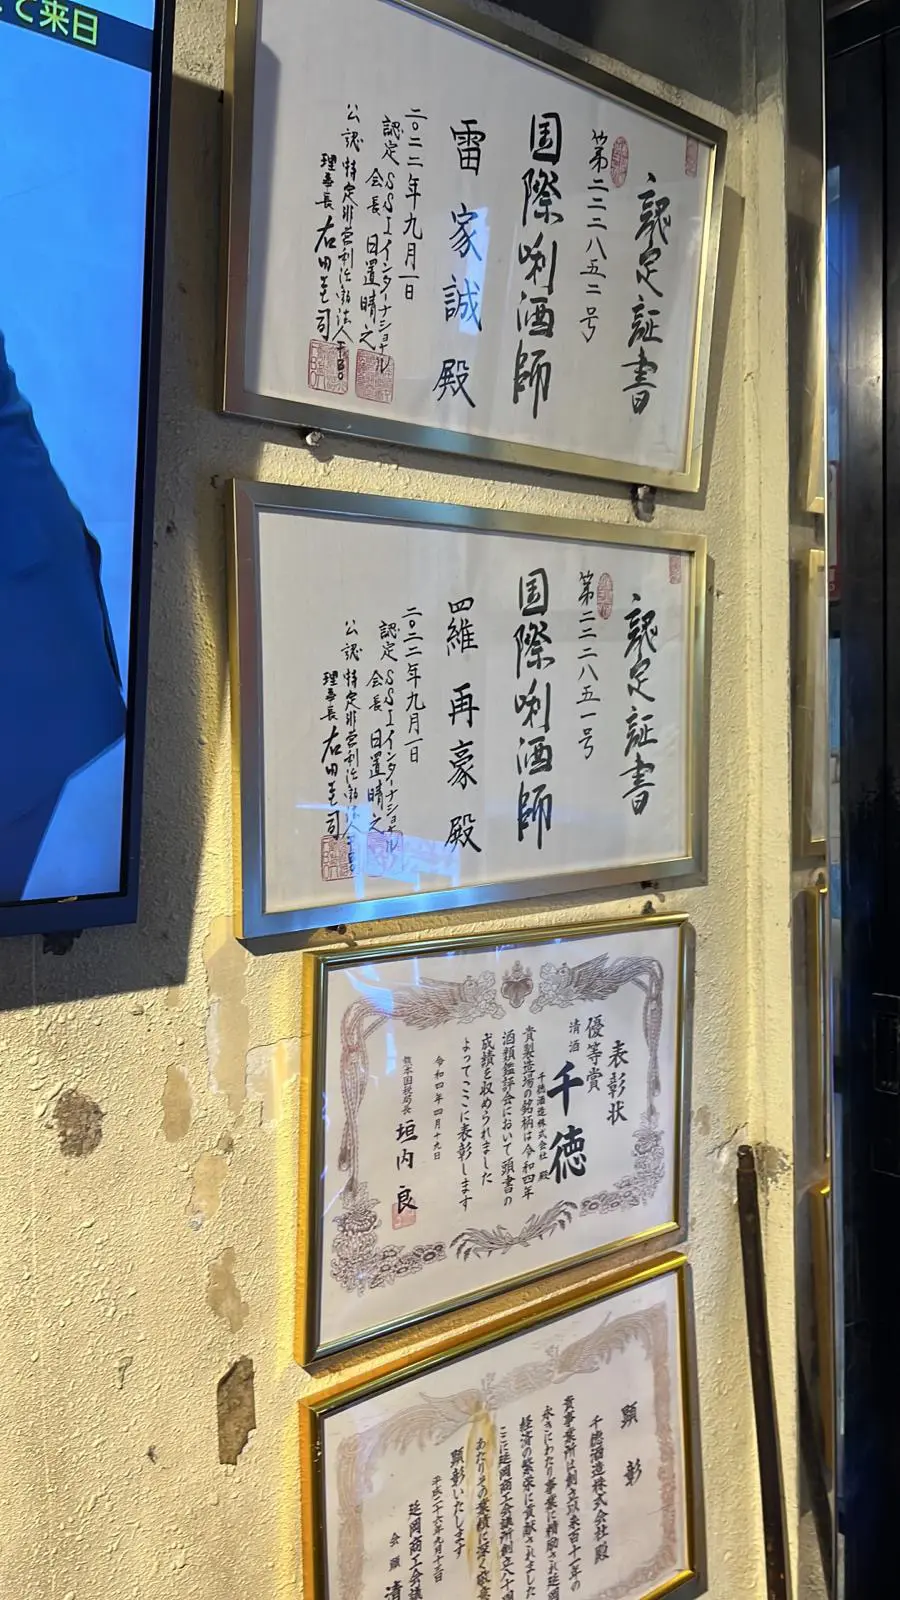 て来日
認定証書
第二二二八五二号
国際唎酒師
雷家誠殿
二〇二二年九月一日
認定 SSIインターナショナル
会長 日置晴之
公認 特定非営利活動法人FBO
理事長 右田圭司
認定証書
第二二二八五一号
国際唎酒師
羅維再豪殿
二〇二二年九月一日
認定 SSIインターナショナル
会長 日置晴之
公認 特定非営利活動法人FBO
理事長 右田圭司
表彰状
優等賞
清酒 千徳
千徳酒造株式会社 殿
貴製造場の銘柄は令和四年
酒類鑑評会において頭書の
成績を収められました
よってここに表彰します
令和四年四月十九日
熊本国税局長 垣内良
顕彰
千徳酒造株式会社殿
貴事業所は創立以来百十一年の
永きにわたり事業に精励され延岡
経済の繁栄に貢献されました
ここに延岡商工会議所創立八十
あたりその業績に深く敬意
顕彰いたします
平成二十六年九月十二日
延岡商工会議
会頭 清